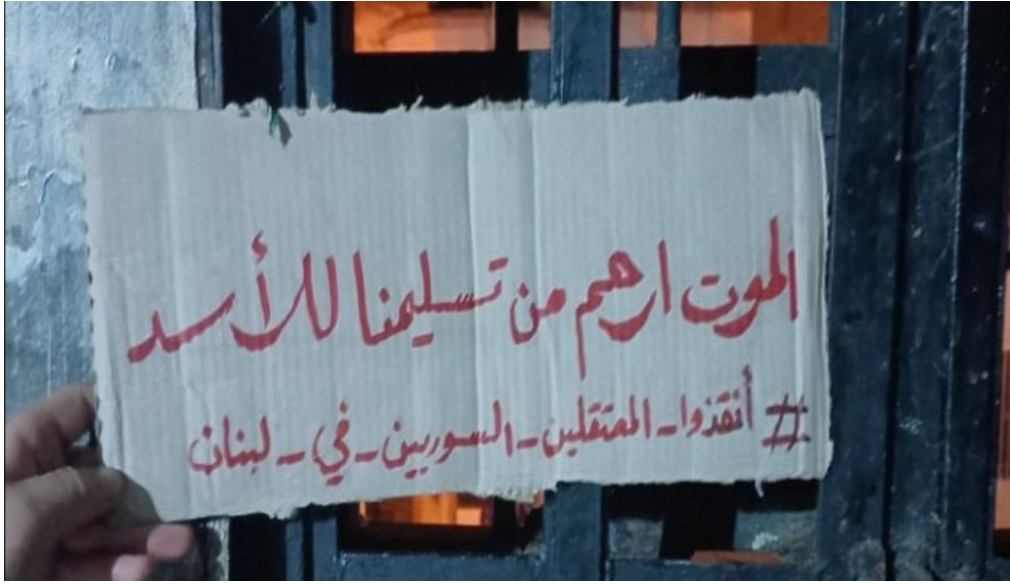 الموت ارهم من تسليمنا للأسد
#أنقذوا_المعتقلين_السوريين_في_لبنان